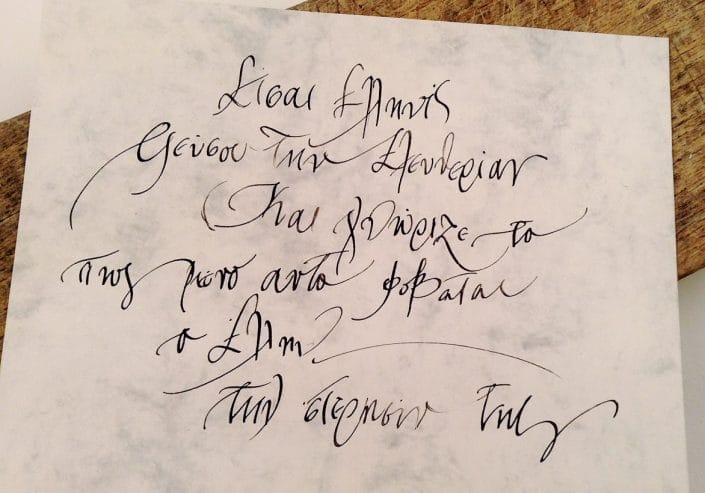 Είσαι Ελληνίς
Γεύσου την Ελευθερίαν
Και γνώριζε το
πως μόνο αυτό φοβάται
ο Έλλην
την στέρησιν της